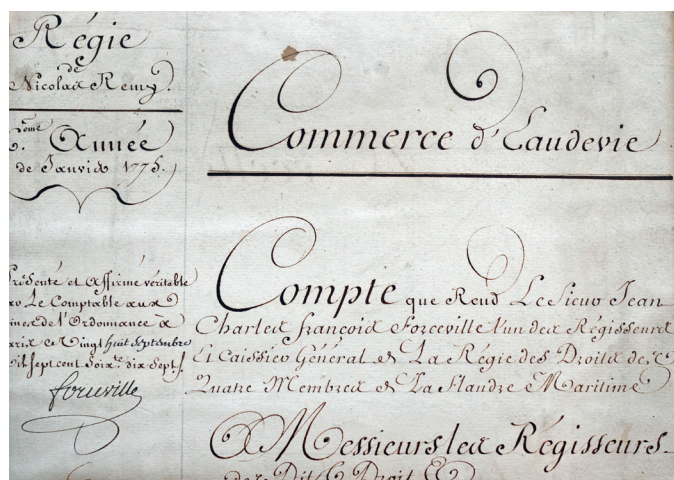 Régie
de
Nicolas Remy.
2.eme Année
de Janvier 1775.
Présenté et Affirmé véritable
par Le Comptable aux
de l'Ordonnance à
Paris ce Vingt huit Septembre
Mil sept cent Soix.te dix Sept /.
forceville
Commerce d'Eaudevie
Compte que Rend Le Sieur Jean
Charles françois Forceville l'un des Régisseurs
Et Caissier Général de La Régie des Droits des
Quatre Membres de La Flandre Maritime
A Messieurs les Régisseurs
des Dits Droits